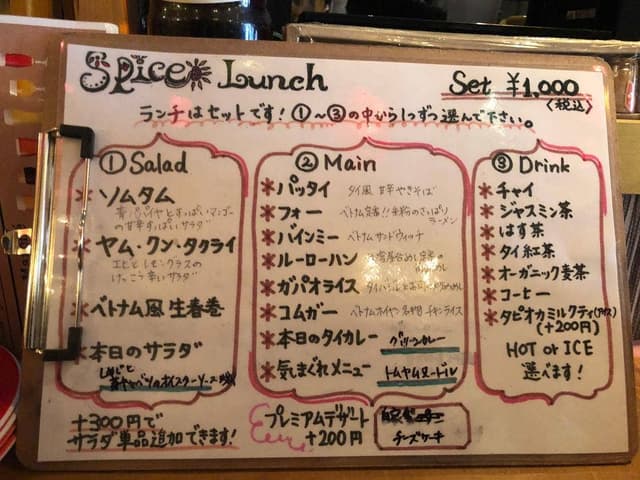 Spice Lunch
Set ¥1,000
〈税込〉
ランチはセットです!①〜③の中から1つずつ選んで下さい。
① Salad
* ソムタム
青パパイヤとすっぱいマンゴー
の甘辛すっぱいサラダ
* ヤム・クン・タクライ
エビとレモングラスの
けっこう辛いサラダ
* ベトナム風 生春巻
* 本日のサラダ
② Main
* パッタイ タイ風 甘辛やきそば
* フォー ベトナム定番!!米粉のさっぱり
ラーメン
* バインミー ベトナムサンドウィッチ
* ルーローハン
* ガパオライス
* コムガー ベトナムホイアン名物 チキンライス
* 本日のタイカレー グリーンカレー
* 気まぐれメニュー トムヤムヌードル
③ Drink
* チャイ
* ジャスミン茶
* はす茶
* タイ紅茶
* オーガニック麦茶
* コーヒー
* タピオカミルクティ(アイス)
(+200円)
HOT or ICE
選べます!
+300円で
サラダ単品追加できます!
プレミアムデザート
+200円
チーズケーキ